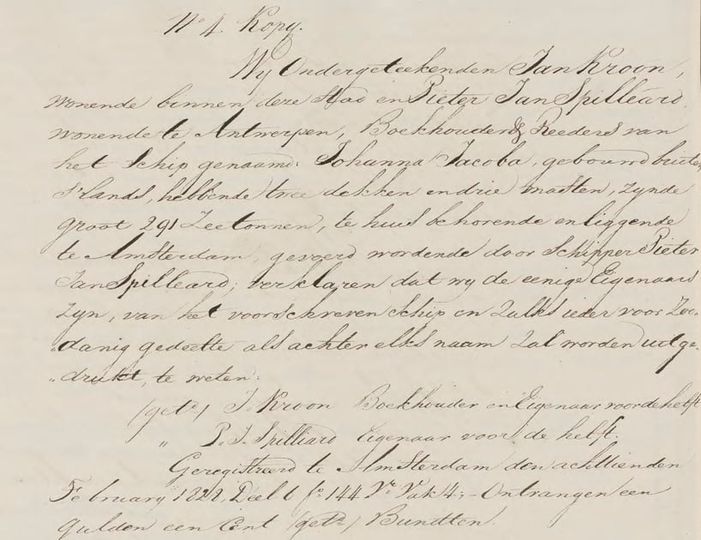 No 1. Kopy.
Wy Ondergeteekenden Jan Kroon,
wonende binnen deze Stad en Pieter Jan Spilleard
wonende te Antwerpen, Boekhouder & Reeders van
het Schip genaamd: Johanna Jacoba, gebouwd buiten
'slands, hebbende twee dekken en drie masten, zynde
groot 291 Zeetonnen, te huis behorende en liggende
te Amsterdam, gevoerd wordende door Schipper Pieter
Jan Spilleard; verklaren dat wy de eenige Eigenaars
zyn, van het voorschreven Schip en zulks ieder voor zoo-
danig gedeelte als achter elks naam zal worden uitge-
drukt, te weten:
(getd) J. Kroon Boekhouder en Eigenaar voor de helft
„ P. J. Spilliard Eigenaar voor de helft,
Geregistreerd te Amsterdam den achttienden
February 1822, Deel 6 fo 144 Vo Vak 4; - Ontvangen een
gulden een Cent (getd)